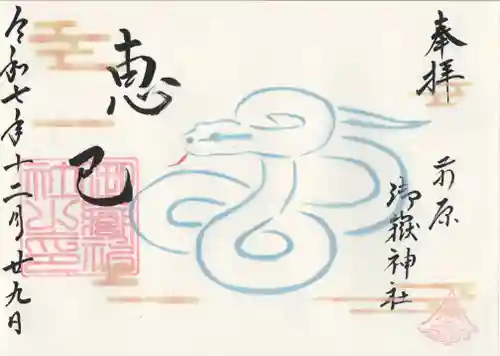 奉拝
前原
御嶽神社
恵巳
令和七年十二月廿九日